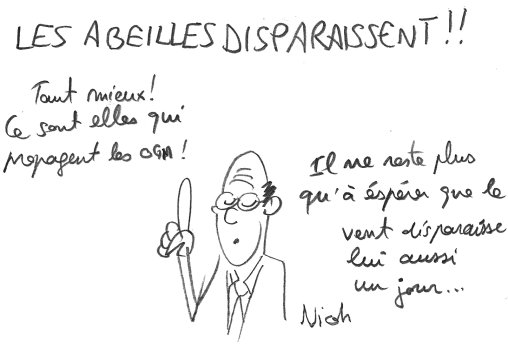 LES ABEILLES DISPARAISSENT!!
Tant mieux!
Ce sont elles qui
propagent les OGM!
Il ne reste plus
qu'à éspérer que le
vent disparaisse
lui aussi
un jour...
Nioh